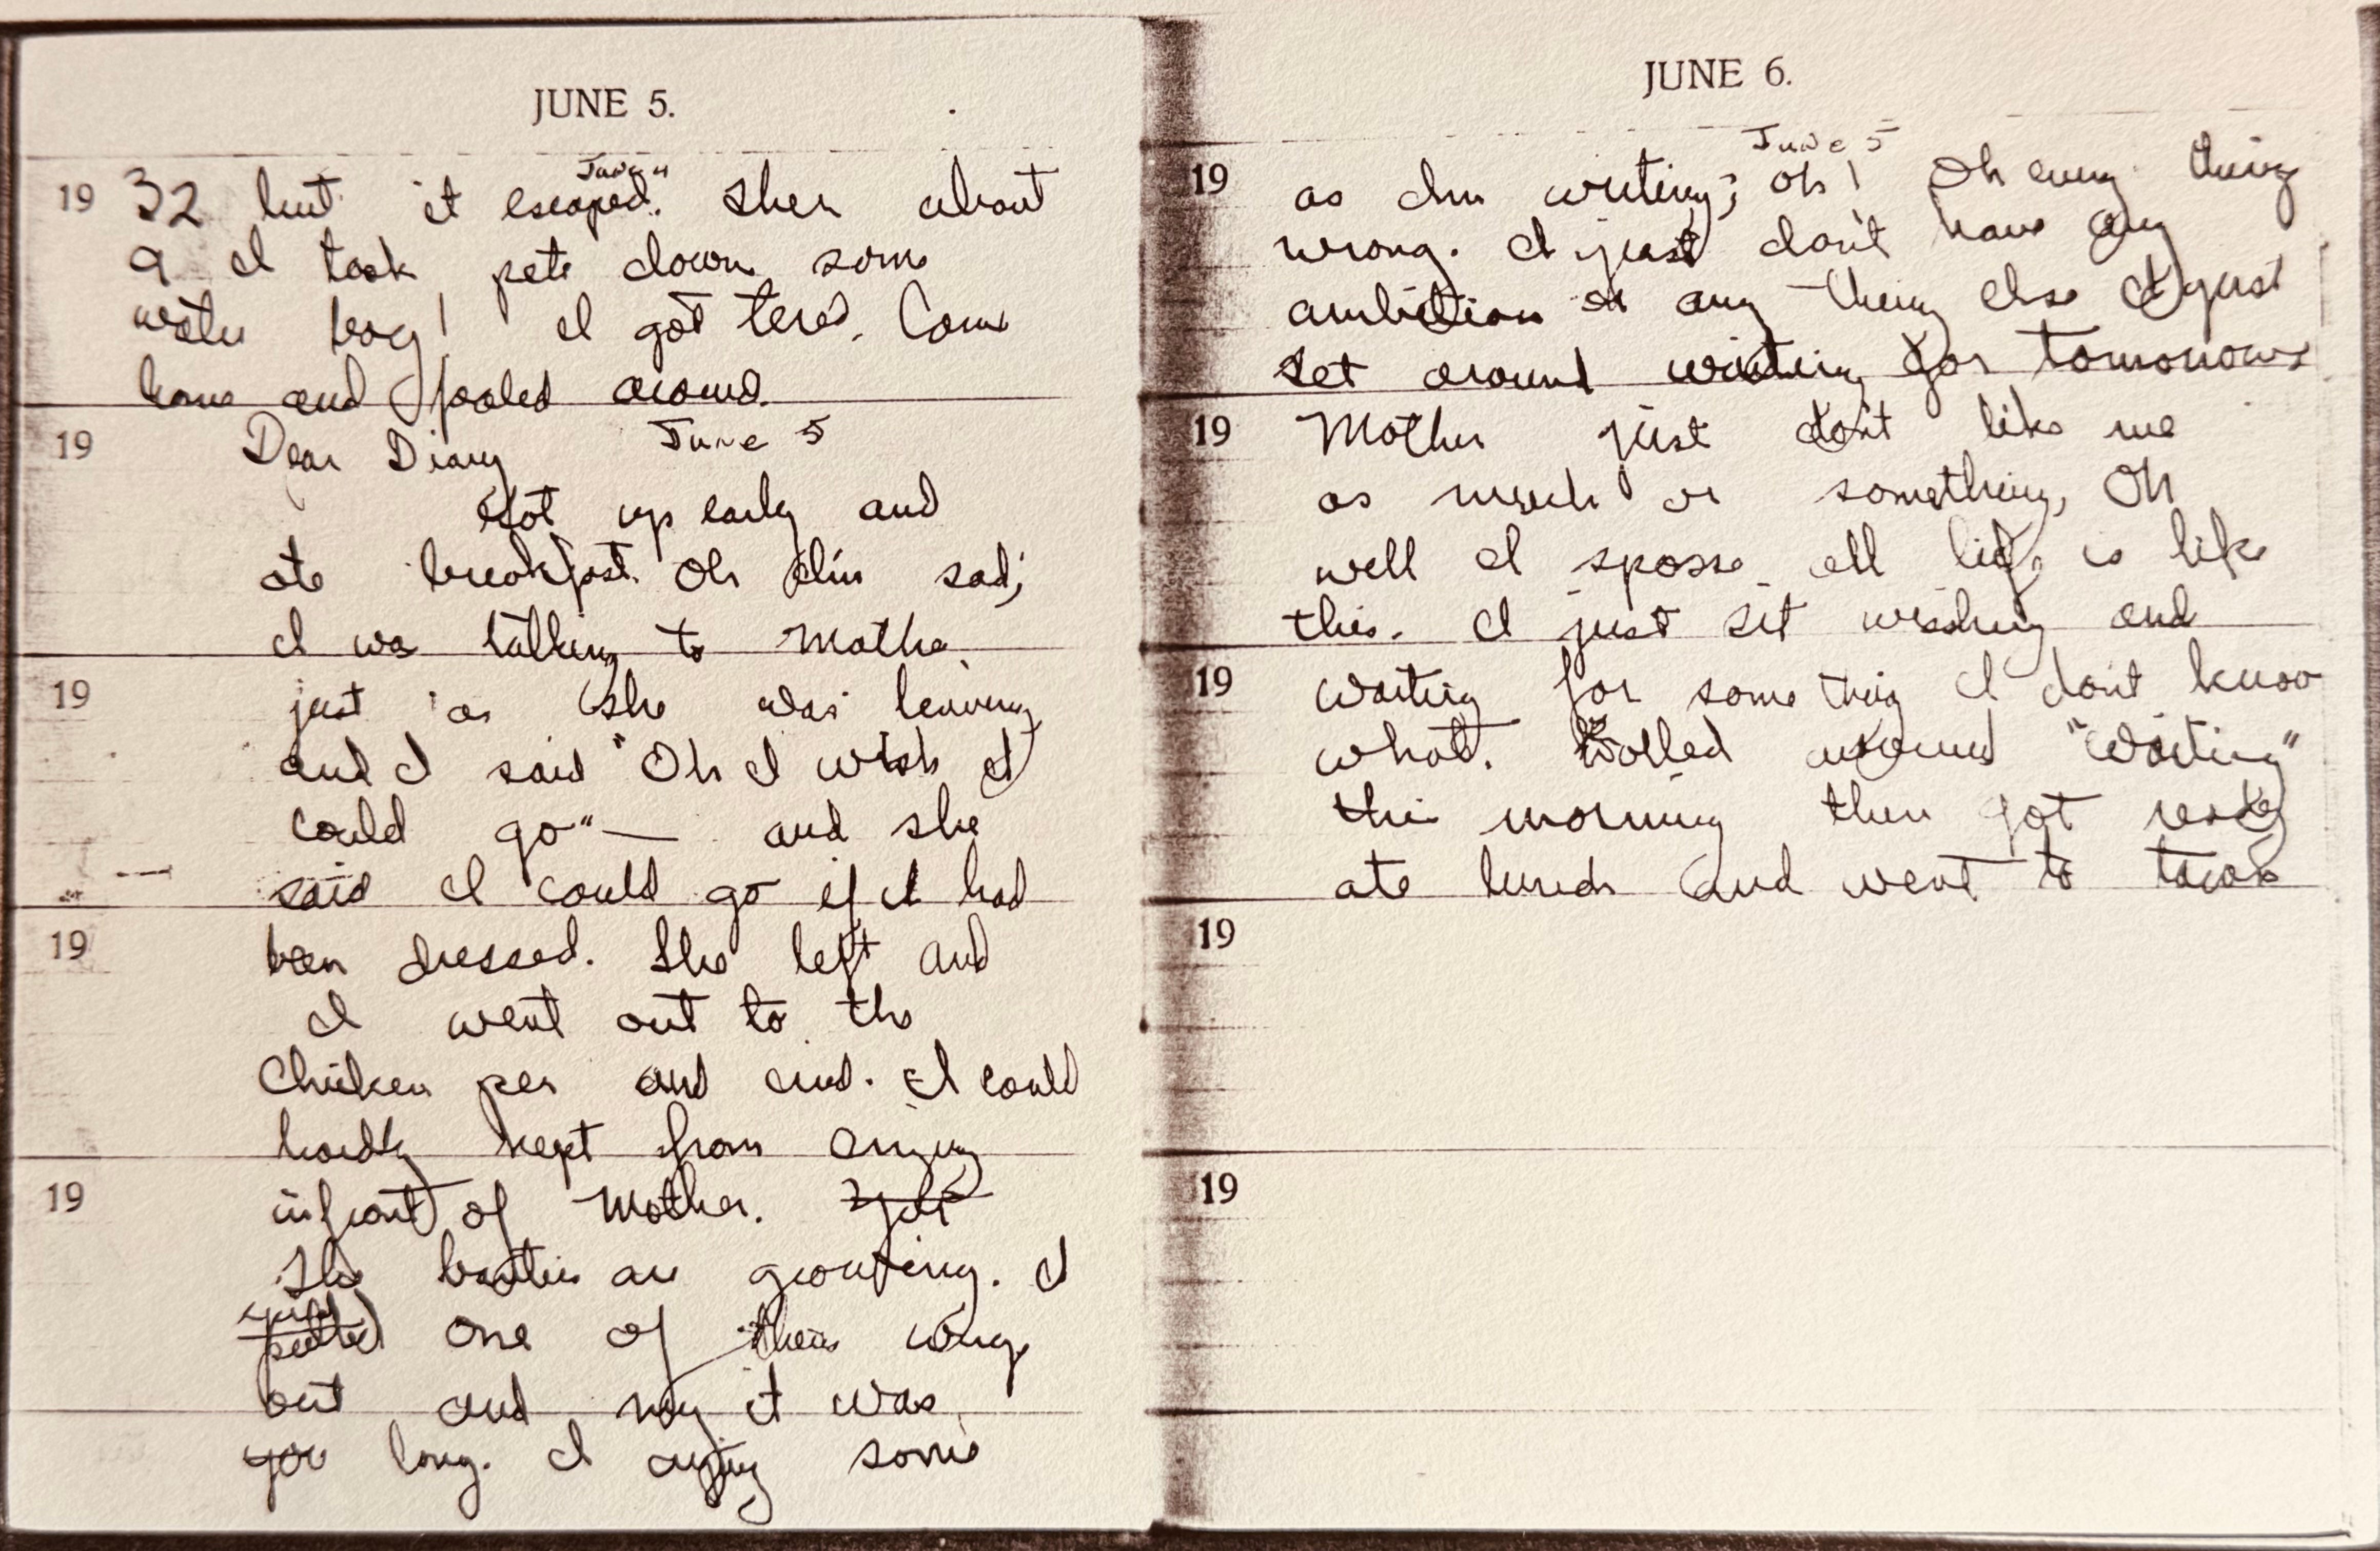 JUNE 5.
June 4
19 32 but it escaped. Then about
9 I took pete down some
water bag! I got tered. Came
home and fooled around.
19 Dear Diary June 5
Got up early and
ate breakfast. Oh I'm sad;
I was talking to Mother
19 just as she was leaving
and I said "Oh I wish I
could go" — and she
said I could go if I had
19 been dressed. She left and
I went out to the
Chicken pen and cried. I could
hardly kept from crying
19 infront of Mother.
The banties are growing. I
one of their wings
out and my it was
long. I crying some
JUNE 6.
June 5
19 as I'm writing; oh! Oh every thing
wrong. I just don't have any
ambition or any thing else I just
set around waiting for tomorrows
19 Mother just don't like me
as much or something, Oh
well I sposse all life is like
this. I just sit wishing and
19 waiting for some thing I don't know
what. around "Waiting"
this morning then got ready
ate lunch and went to town
19
19